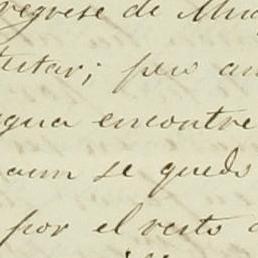 regrese de
tutar; pero an
gua encontre
aun se quedo
por el resto